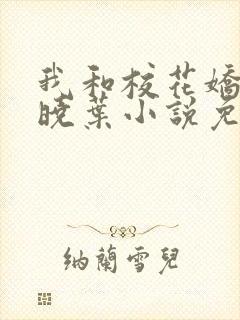 我和校花嬌
曉葉小說免
納蘭雪兒